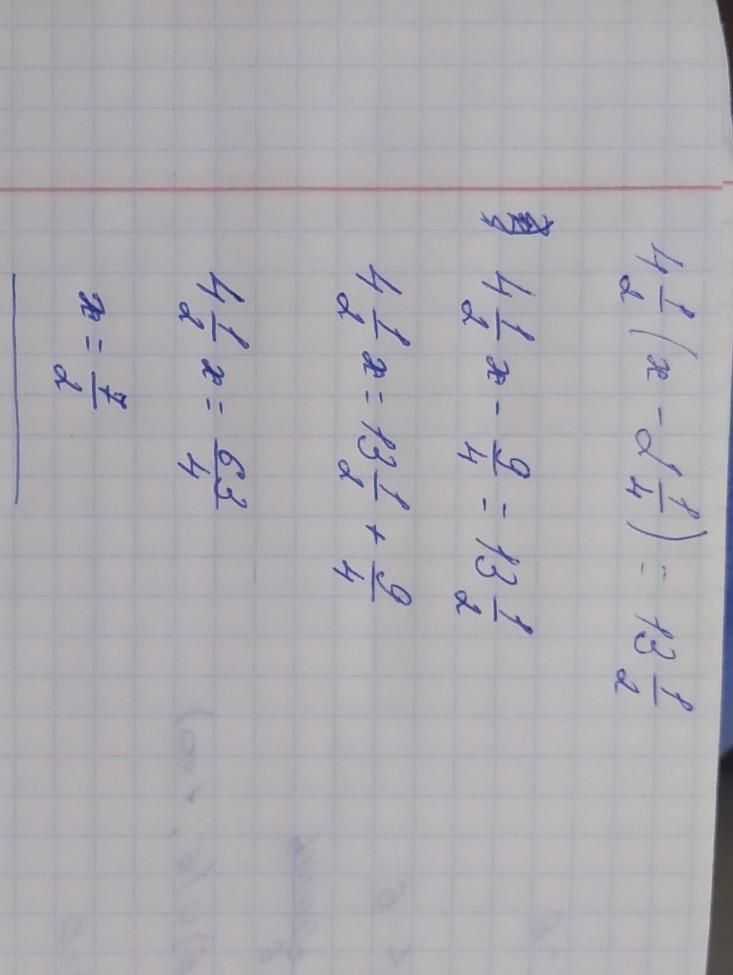 4 1/2 (x - 2 1/4) = 13 1/2
4 1/2 x - 9/4 = 13 1/2
4 1/2 x = 13 1/2 + 9/4
4 1/2 x = 63/4
x = 7/2